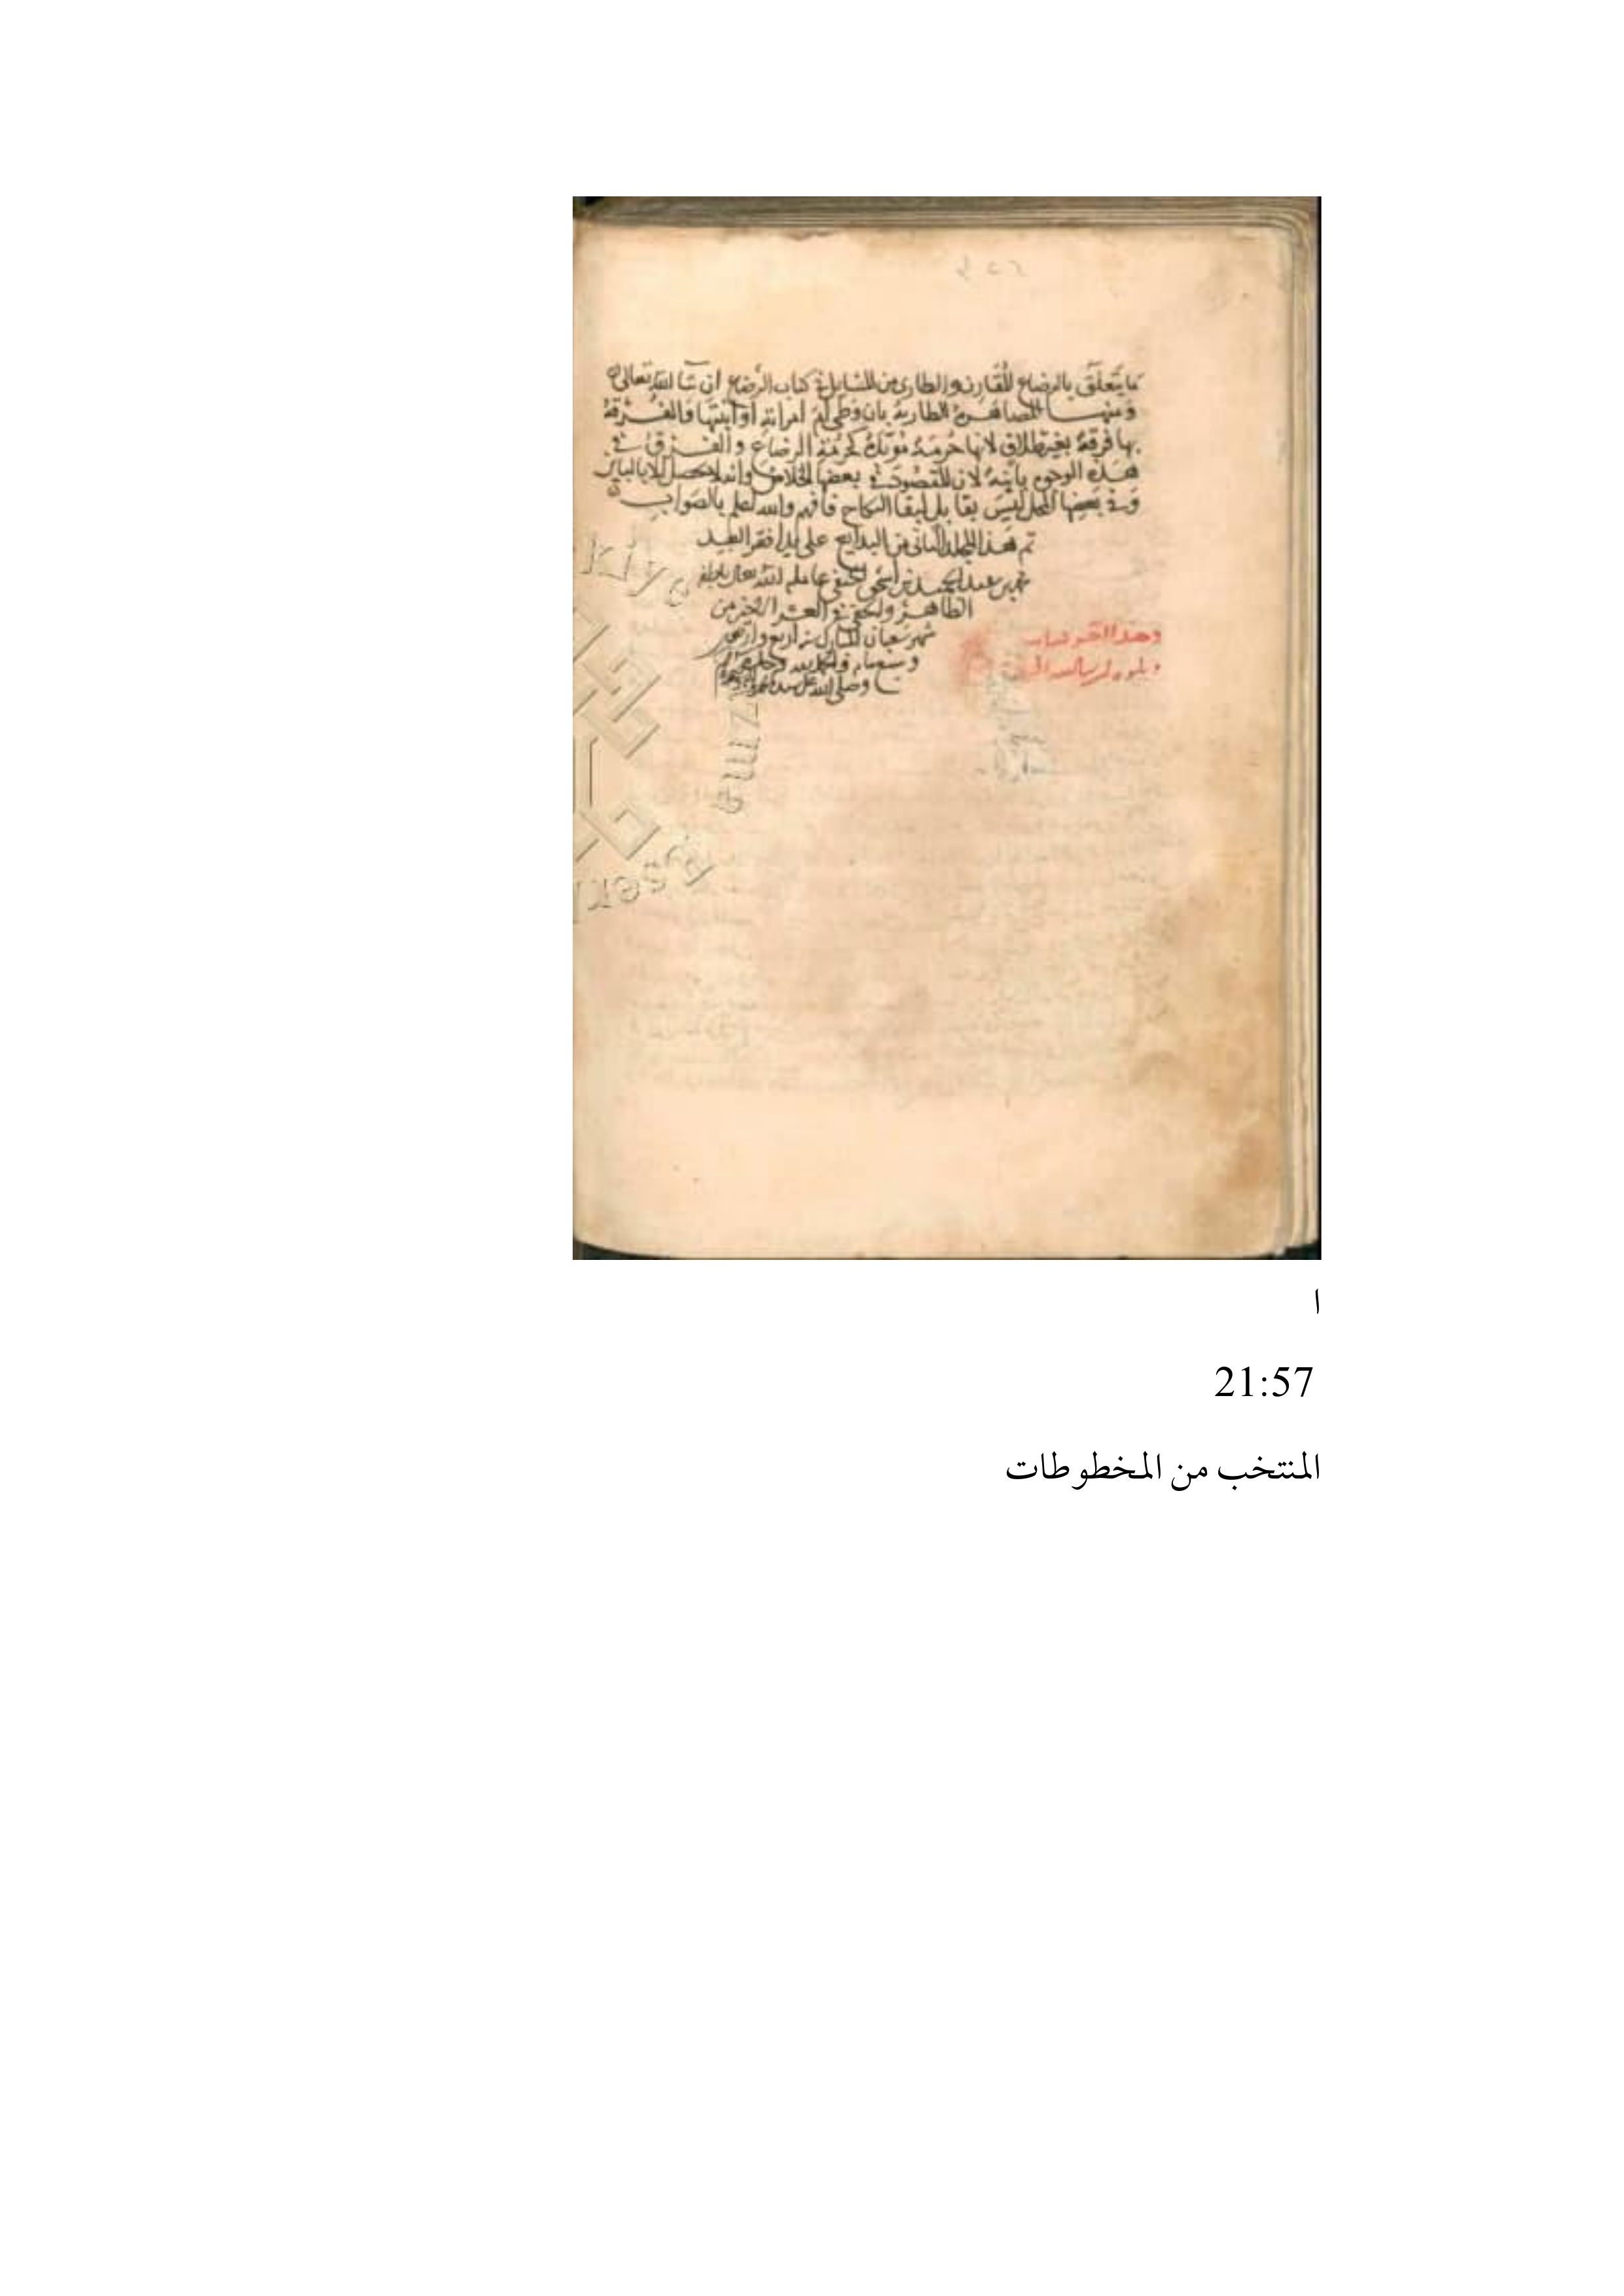 ما يتعلق بالرضاع المقارن والطارى من المسايل في كتاب الرضاع ان شا الله تعالى
ومنها المصاهرة الطارية بان وطى ام امراته او ابنتها والفرقة
بها فرقة بغير طلاق لانها حرمة موبدة كحرمة الرضاع و الفرق في
هذه الوجوه باينة لان المقصود في بعضها الخلاص وانه لا يحصل الا بالباين
وفي بعضها المحل ليس بقابل لبقا النكاح فافهم والله اعلم بالصواب
تم هذا المجلد الثاني من البدايع على يد افقر العبيد
محمد بن عبد الحميد بن اسحق الحنفي عامله الله تعالى بلطفه
الظاهر والخفي في العشر الاخير من
شهر شعبان المبارك سنة اربع واربعين
وسبعمايه والحمد لله وحده
وصلى الله على سيدنا محمد
وهذا
ا
21:57
المنتخب من المخطوطات